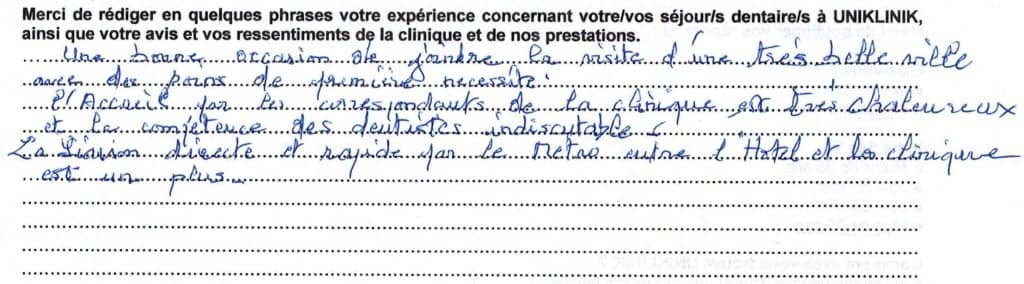 Merci de rédiger en quelques phrases votre expérience concernant votre/vos séjour/s dentaire/s à UNIKLINIK,
ainsi que votre avis et vos ressentiments de la clinique et de nos prestations.
Une bonne occasion de joindre la visite d'une très belle ville
avec des soins de première necessité.
L'Accueil par les correspondants de la clinique est très chaleureux
et la compétence des dentistes indiscutable
La Liaison directe et rapide par le Metro entre l'Hotel et la clinique
est un plus.